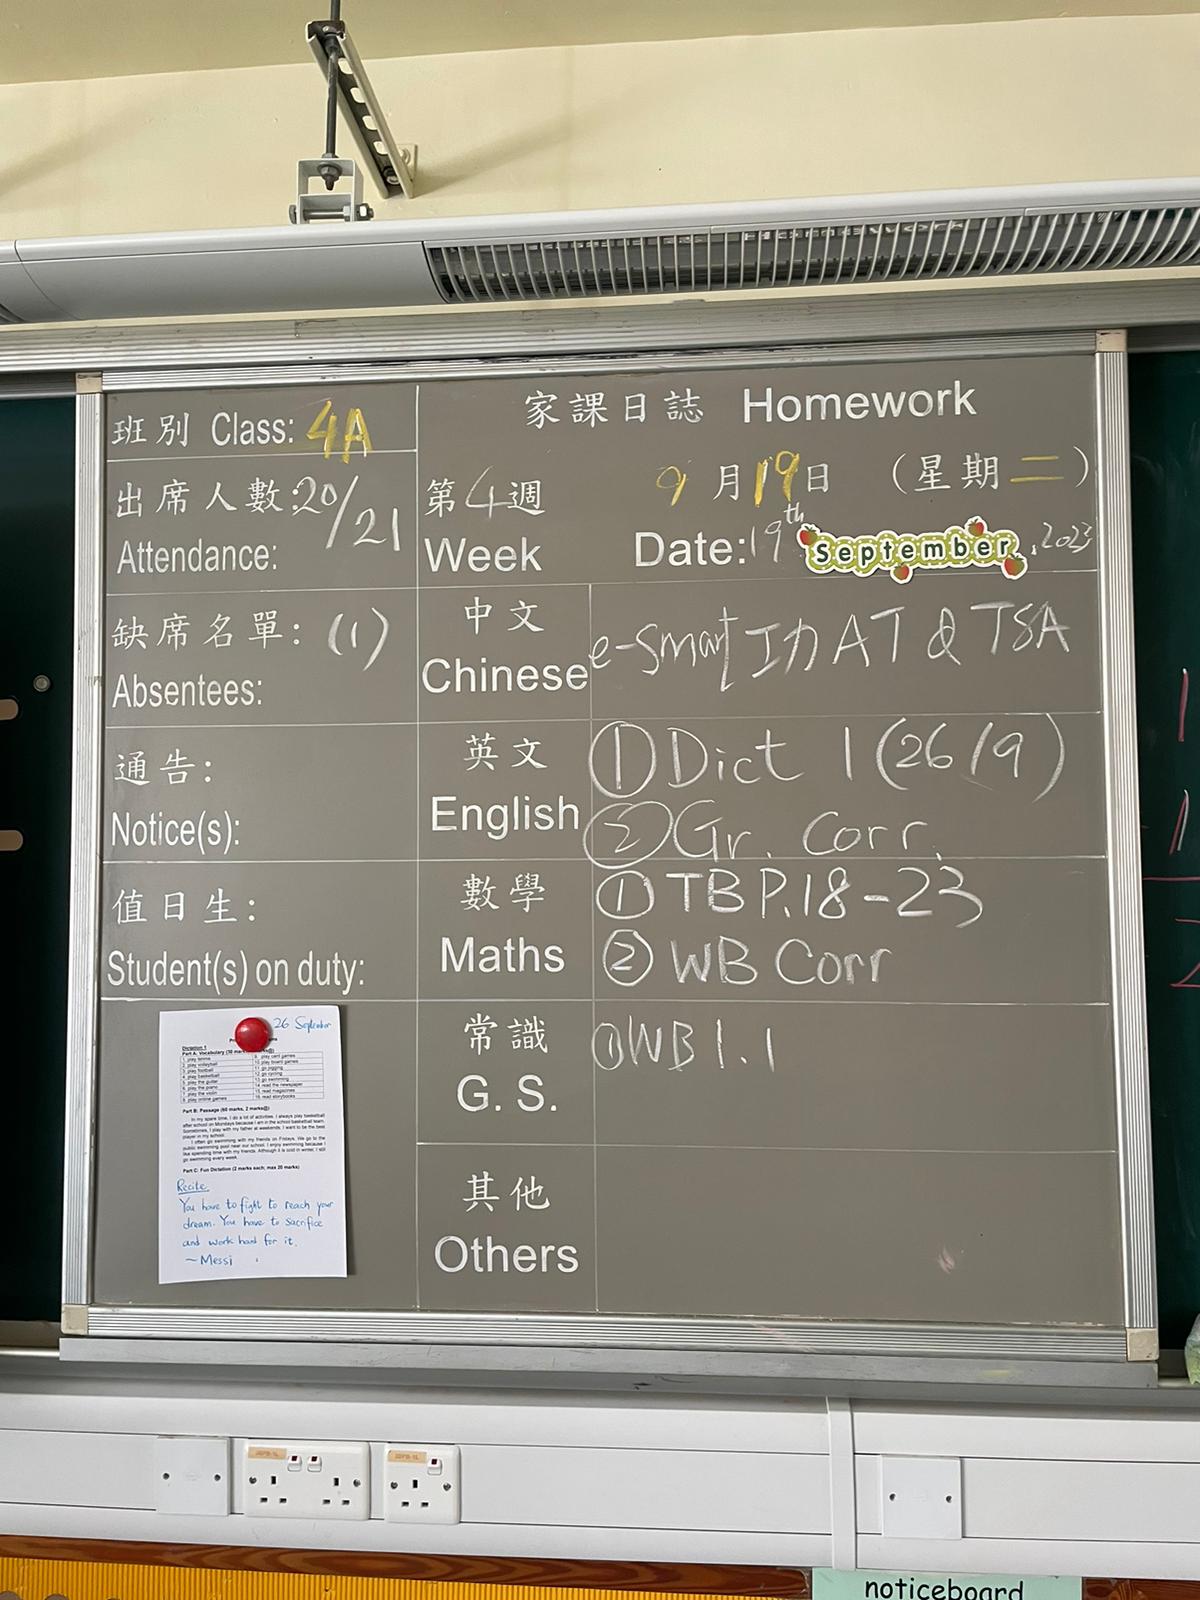 家課日誌 Homework
班別 Class: 4A
出席人數: 20/21
Attendance:
第4週
Week
9月19日 (星期二)
Date: 19th September, 2023
缺席名單: (1)
Absentees:
中文
Chinese
e-Smart 功 AT & TSA
通告:
Notice(s):
英文
English
① Dict 1 (26/9)
② Gr. Corr.
值日生:
Student(s) on duty:
數學
Maths
① TB P.18-23
② WB Corr
常識
G. S.
① WB 1.1
其他
Others
26 September
Dictation 1
Part A: Vocabulary (30 mar
1. play tennis
2. play volleyball
3. play football
4. play basketball
5. play the guitar
6. play the piano
7. play the violin
8. play online games
9. play card games
10. play board games
11. go jogging
12. go cycling
13. go swimming
14. read the newspaper
15. read magazines
16. read storybooks
Part B: Passage (60 marks, 2 marks@)
In my spare time, I do a lot of activities. I always play basketball
after school on Mondays because I am in the school basketball team.
Sometimes, I play with my father at weekends. I want to be the best
player in my school.
I often go swimming with my friends on Fridays. We go to the
public swimming pool near our school. I enjoy swimming because I
like spending time with my friends. Although it is cold in winter, I still
go swimming every week.
Part C: Fun Dictation (2 marks each; max 20 marks)
Recite
You have to fight to reach your
dream. You have to sacrifice
and work hard for it.
~Messi
noticeboard